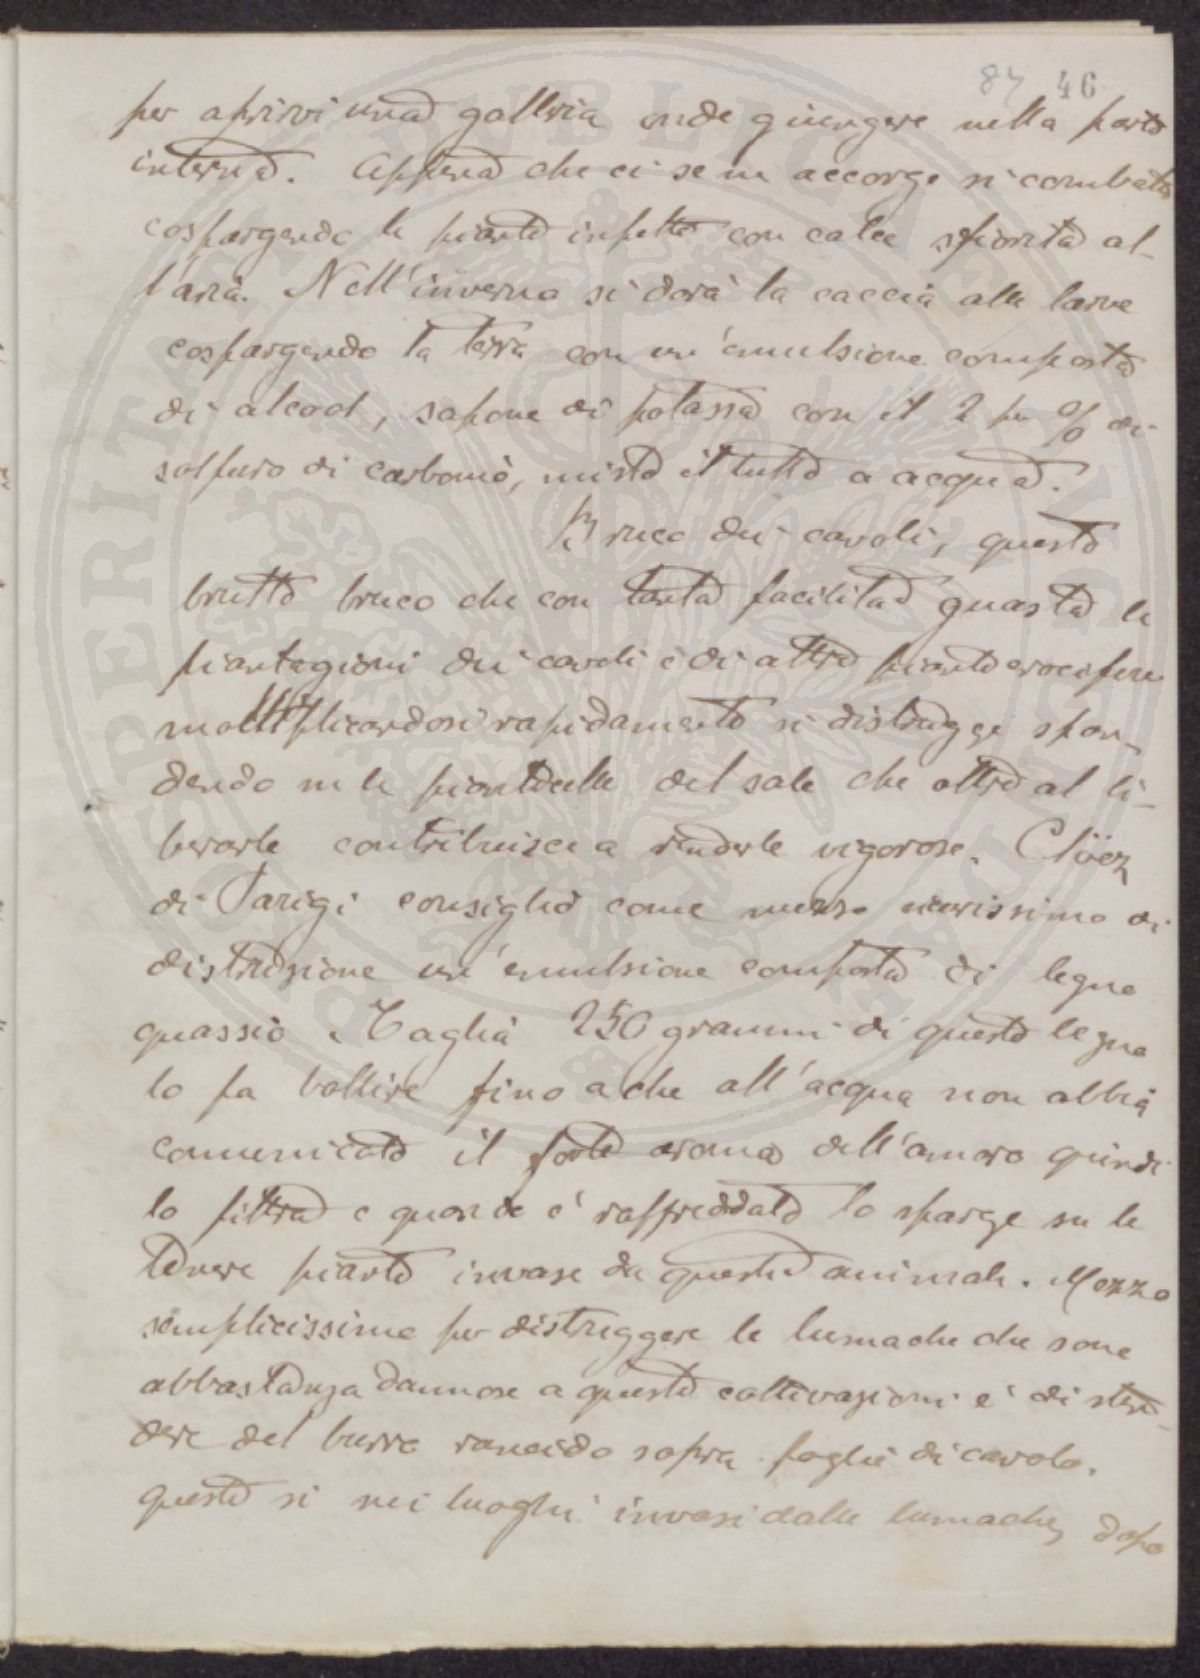 87 46
per aprirvi una galleria onde giungere nella parte
interna. Appena che ci se ne accorge si combatte
cospargendo le piante infette con calce sfiorita al-
l'aria. Nell'inverno si darà la caccia alle larve
cospargendo la terra con un'emulsione composta
di alcool, sapone di potassa con il 2 per % di
solfuro di carbonio, misto il tutto a acqua.
Bruco dei cavoli, questo
brutto bruco che con tanta facilità guasta le
piantagioni dei cavoli e di altre piante crocifere
moltiplicandosi rapidamente si distrugge span-
dendo su le pianticelle del sale che oltre al li-
berarle contribuisce a renderle vigorose. Clöez
di Parigi consigliò come mezzo sicurissimo di
distruzione un'emulsione composta di legno
quassio. Taglia 250 grammi di questo legno
lo fa bollire fino a che all'acqua non abbia
comunicato il forte aroma dell'amaro quindi
lo filtra e quando è raffreddato lo sparge su le
tenere piante invase da questi animali. Mezzo
semplicissimo per distruggere le lumache che sono
abbastanza dannose a queste coltivazioni è di sten-
dere del burro rancido sopra foglie di cavolo.
queste si nei luoghi invasi dalle lumache, dopo
PROSPERITATI PVBLICAE AVGENDAE